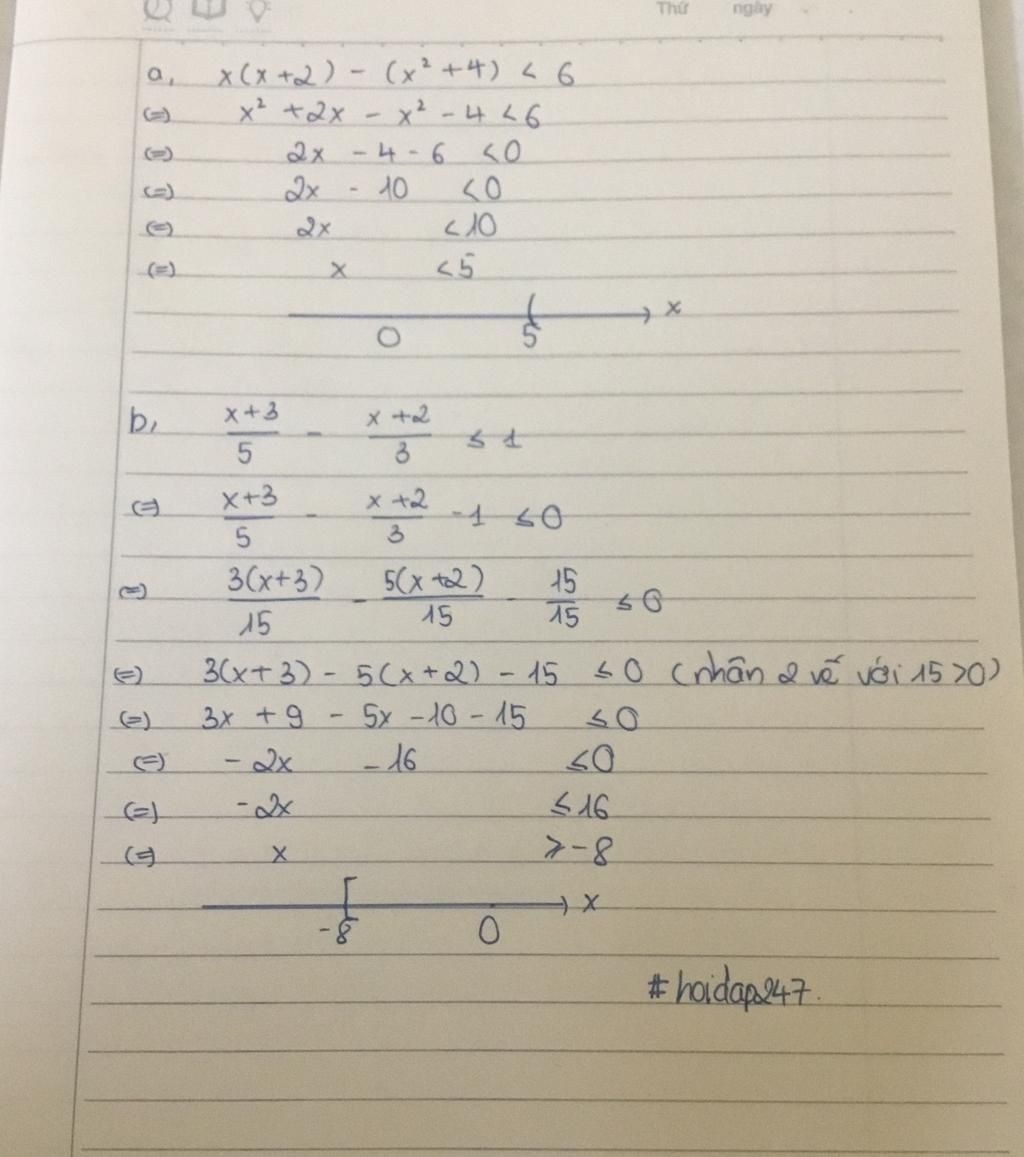 Thứ ngày
a, x(x+2) - (x² +4) < 6
(=) x² +2x - x² - 4 < 6
(=) 2x - 4 - 6 < 0
(=) 2x - 10 < 0
(=) 2x < 10
(=) x < 5
0 5 x
b, (x+3)/5 - (x+2)/3 ≤ 1
(=) (x+3)/5 - (x+2)/3 - 1 ≤ 0
(=) 3(x+3)/15 - 5(x+2)/15 - 15/15 ≤ 0
(=) 3(x+3) - 5(x+2) - 15 ≤ 0 (nhân 2 vế với 15 > 0)
(=) 3x + 9 - 5x - 10 - 15 ≤ 0
(=) - 2x - 16 ≤ 0
(=) - 2x ≤ 16
(=) x ≥ -8
-8 0 x
#hoidap247.